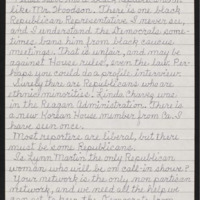 like Mr. Woodson. There is one black
Republican Representative I never see,
and I understand the Democrats some-
times bans him from black caucus
meetings. That is unfair, and may be
against House rules, even the law. Per-
haps you could do a profile interview.
Surely there are Republicans who are
ethnic minorities. Linda Chavez
in the Reagan Administration. There is
a new Korean House member from Ca. I
have seen once.
Most reporters are liberal, but there
must be some Republicans.
Is Lynn Martin the only Republican
woman who will be on call-in shows?
Your network is the only non partisan
network, and we need all the help we
can get to keep the Democrats from